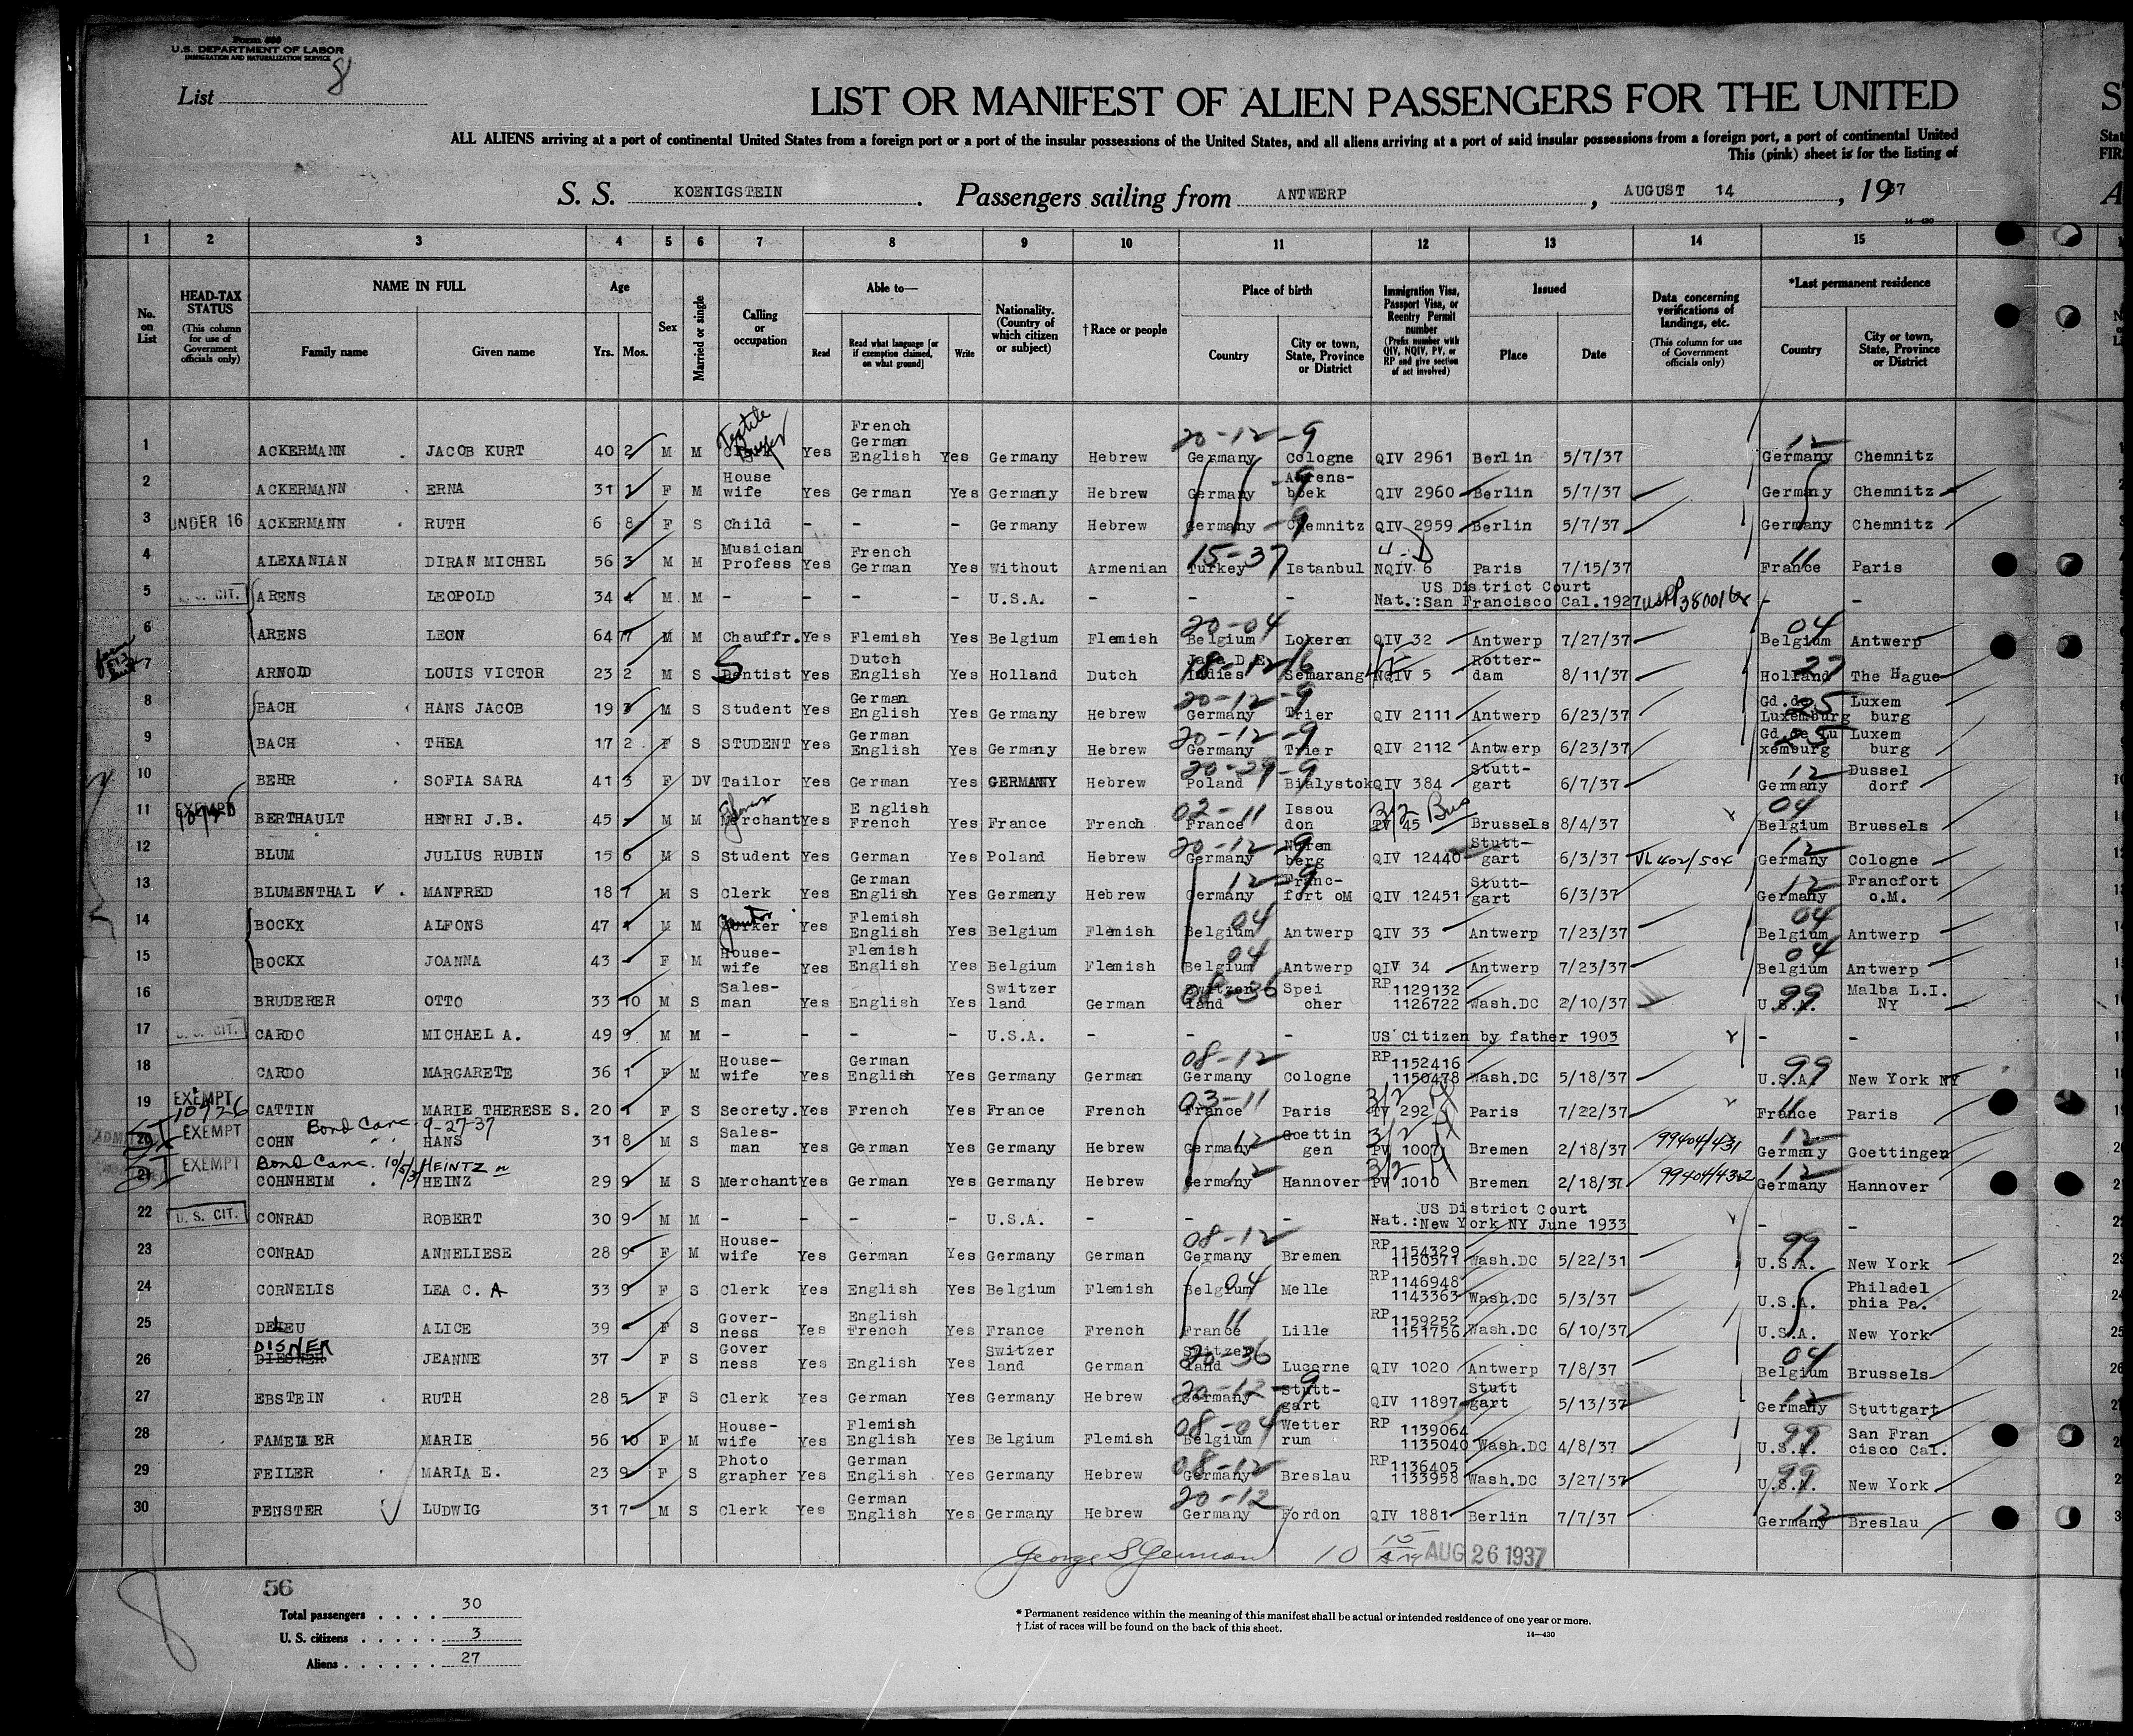 Form 500
U.S. DEPARTMENT OF LABOR
IMMIGRATION AND NATURALIZATION SERVICE
List 8
LIST OR MANIFEST OF ALIEN PASSENGERS FOR THE UNITED
ALL ALIENS arriving at a port of continental United States from a foreign port or a port of the insular possessions of the United States, and all aliens arriving at a port of said insular possessions from a foreign port, a port of continental United
This (pink) sheet is for the listing of
S. S. KOENIGSTEIN . Passengers sailing from ANTWERP , AUGUST 14 , 1937
14-430
1 2 3 4 5 6 7 8 9 10 11 12 13 14 15
No. on List
HEAD-TAX STATUS (This column for use of Government officials only)
NAME IN FULL Family name Given name
Age Yrs. Mos.
Sex
Married or single
Calling or occupation
Able to— Read Read what language [or if exemption claimed, on what ground] Write
Nationality. (Country of which citizen or subject)
†Race or people
Place of birth Country City or town, State, Province or District
Immigration Visa, Passport Visa, or Reentry Permit number (Prefix number with QIV, NQIV, PV, or RP and give section of act involved)
Issued Place Date
Data concerning verifications of landings, etc. (This column for use of Government officials only)
*Last permanent residence Country City or town, State, Province or District
1 ACKERMANN JACOB KURT 40 2 M M Textile Buyer Yes French German English Yes Germany Hebrew 20-12-9 Germany Cologne QIV 2961 Berlin 5/7/37 12 Germany Chemnitz
2 ACKERMANN ERNA 31 M F House wife Yes German Yes Germany Hebrew Germany Ahrens- boek QIV 2960 Berlin 5/7/37 Germany Chemnitz
3 UNDER 16 ACKERMANN RUTH 6 8 F S Child - - - Germany Hebrew Germany -9 Chemnitz QIV 2959 Berlin 5/7/37 Germany Chemnitz
4 ALEXANIAN DIRAN MICHEL 56 3 M M Musician Profess Yes French German Yes Without Armenian 15-37 Turkey Istanbul NQIV 6 Paris 7/15/37 11 France Paris
5 U. S. CIT. ARENS LEOPOLD 34 4 M M - - - - U.S.A. - - - US District Court Nat.:San Francisco Cal.1927 - -
6 ARENS LEON 64 7 M M Chauffr. Yes Flemish Yes Belgium Flemish 20-04 Belgium Lokeren QIV 32 Antwerp 7/27/37 04 Belgium Antwerp
7 ARNOLD LOUIS VICTOR 23 2 M S Dentist Yes Dutch English Yes Holland Dutch Java D E Indies Semarang NQIV 5 Rotter- dam 8/11/37 27 Holland The Hague
8 BACH HANS JACOB 19 3 M S Student Yes German English Yes Germany Hebrew 20-12-9 Germany Trier QIV 2111 Antwerp 6/23/37 25 Gd.de Luxemburg Luxem burg
9 BACH THEA 17 2 F S STUDENT Yes German English Yes Germany Hebrew 20-12-9 Germany Trier QIV 2112 Antwerp 6/23/37 25 Gd.de Lu xemburg Luxem burg
10 BEHR SOFIA SARA 41 3 F DV Tailor Yes German Yes GERMANY Hebrew 20-29-9 Poland Bialystok QIV 384 Stutt- gart 6/7/37 12 Germany Dussel dorf
11 EXEMPT BERTHAULT HENRI J.B. 45 - M M Merchant Yes E nglish French Yes France French 02-11 France Issou don 3/2 Bus TV 45 Brussels 8/4/37 04 Belgium Brussels
12 BLUM JULIUS RUBIN 15 6 M S Student Yes German Yes Poland Hebrew 20-12-9 Germany Nurem berg QIV 12440 Stutt- gart 6/3/37 VL 402/504 12 Germany Cologne
13 BLUMENTHAL MANFRED 18 7 M S Clerk Yes German English Yes Germany Hebrew 12-9 Germany Franc- fort oM QIV 12451 Stutt- gart 6/3/37 12 Germany Francfort o.M.
14 BOCKX ALFONS 47 M M Janitor Yes Flemish English Yes Belgium Flemish 04 Belgium Antwerp QIV 33 Antwerp 7/23/37 04 Belgium Antwerp
15 BOCKX JOANNA 43 - F M House- wife Yes Flemish English Yes Belgium Flemish 04 Belgium Antwerp QIV 34 Antwerp 7/23/37 04 Belgium Antwerp
16 BRUDERER OTTO 33 10 M S Sales- man Yes English Yes Switzer land German 08-36 Switzer land Spei cher RP 1129132 1126722 Wash.DC 2/10/37 99 U.S.A. Malba L.I. NY
17 U. S. CIT. CARDO MICHAEL A. 49 9 M M - - - - U.S.A. - - - US Citizen by father 1903 - -
18 CARDO MARGARETE 36 1 F M House- wife Yes German English Yes Germany German 08-12 Germany Cologne RP 1152416 1150478 Wash.DC 5/18/37 99 U.S.A. New York NY
19 EXEMPT 10926 CATTIN MARIE THERESE S. 20 1 F S Secrety. Yes French Yes France French 03-11 France Paris TV 292 Paris 7/22/37 11 France Paris
20 EXEMPT Bond Canc. 9-27-37 COHN HANS 31 8 M S Sales- man Yes German Yes Germany Hebrew 12 Germany Goettin gen 3/2 PV 1007 Bremen 2/18/37 99404/431 12 Germany Goettingen
21 EXEMPT Bond Canc. 10/5/37 HEINTZ COHNHEIM HEINZ 29 9 M S Merchant Yes German Yes Germany Hebrew 12 Germany Hannover 3/2 PV 1010 Bremen 2/18/37 99404/432 12 Germany Hannover
22 U. S. CIT. CONRAD ROBERT 30 9 M M - - - - U.S.A. - - - US District Court Nat.:New York NY June 1933 - -
23 CONRAD ANNELIESE 28 9 F M House- wife Yes German Yes Germany German 08-12 Germany Bremen RP 1154329 1150571 Wash.DC 5/22/31 99 U.S.A. New York
24 CORNELIS LEA C. A 33 9 F S Clerk Yes English Yes Belgium Flemish 04 Belgium Melle RP 1146948 1143363 Wash.DC 5/3/37 U.S.A. Philadel phia Pa.
25 ALICE 39 - F S Gover- ness Yes English French Yes France French 11 France Lille RP 1159252 1151756 Wash.DC 6/10/37 U.S.A. New York
26 DISNER DIESNER JEANNE 37 - F S Gover ness Yes English Yes Switzer land German 20-36 Switzer land Lucerne QIV 1020 Antwerp 7/8/37 04 Belgium Brussels
27 EBSTEIN RUTH 28 5 F S Clerk Yes German Yes Germany Hebrew 20-12-9 Germany Stutt- gart QIV 11897 Stutt gart 5/13/37 12 Germany Stuttgart
28 MARIE 56 10 F M House- wife Yes Flemish English Yes Belgium Flemish 08-04 Belgium Wetter rum RP 1139064 1135040 Wash.DC 4/8/37 99 U.S.A. San Fran cisco Cal.
29 FEILER MARIA E. 23 9 F S Photo grapher Yes German English Yes Germany Hebrew 08-12 Germany Breslau RP 1136405 1133958 Wash.DC 3/27/37 99 U.S.A. New York
30 FENSTER LUDWIG 31 7 M S Clerk Yes German English Yes Germany Hebrew 20-12 Germany Fordon QIV 1881 Berlin 7/7/37 12 Germany Breslau
George S German 10 AUG 26 1937
56
Total passengers . . . . 30
U. S. citizens . . . . . 3
Aliens . . . . . . 27
* Permanent residence within the meaning of this manifest shall be actual or intended residence of one year or more.
† List of races will be found on the back of this sheet.
14—430